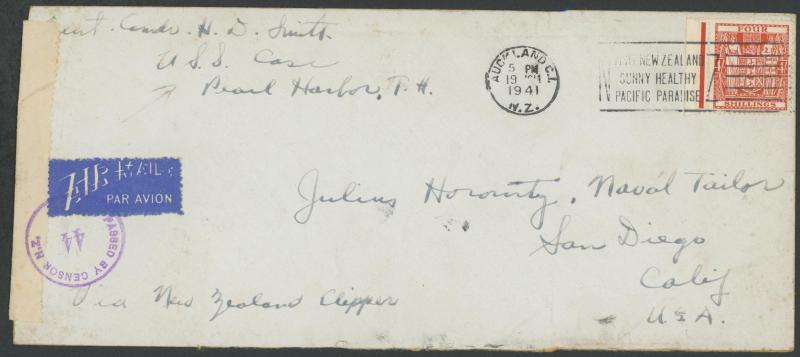 Lieut. Comdr. H. D. Smith
U.S.S. Case
Pearl Harbor, T.H.
AUCKLAND C.1.
5 PM
19
1941
N.Z.
VISIT NEW ZEALAND
SUNNY HEALTHY
PACIFIC PARADISE
FOUR
SHILLINGS
AIR MAIL
PAR AVION
PASSED BY CENSOR N.Z.
44
Julius Horowitz, Naval Tailor
San Diego
Calif
U.S.A.
Via New Zealand Clipper